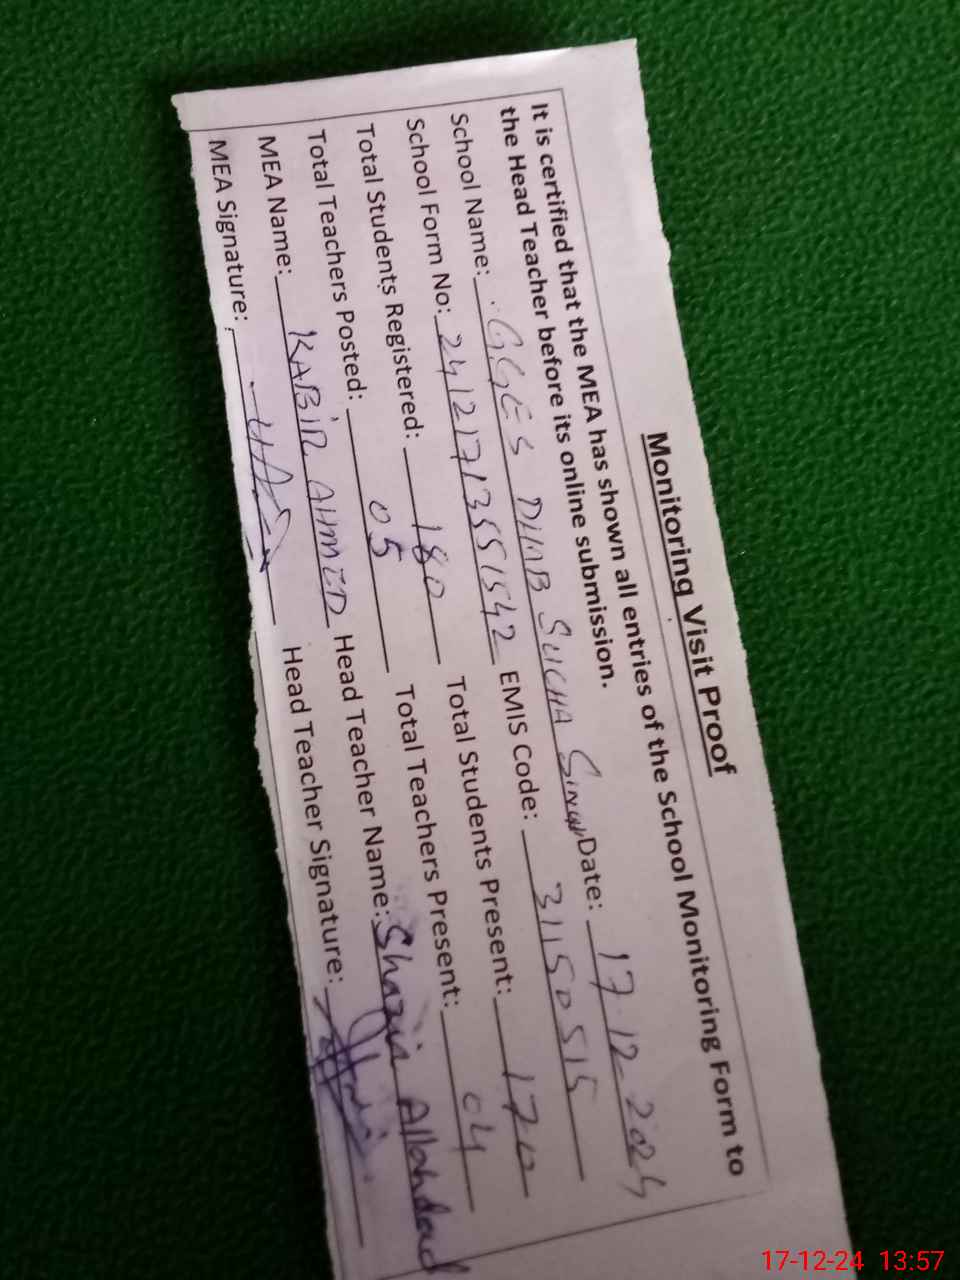 Monitoring Visit Proof
It is certified that the MEA has shown all entries of the School Monitoring Form to
the Head Teacher before its online submission.
School Name: GGES DIAB SUCHA SINGH Date: 17.12.2024
School Form No: 24121713551542 EMIS Code: 31150515
Total Students Registered: 180 Total Students Present: 170
Total Teachers Posted: 05 Total Teachers Present: 04
MEA Name: KABIR AHMED Head Teacher Name: Shazia Allahdad
MEA Signature: Head Teacher Signature:
17-12-24 13:57